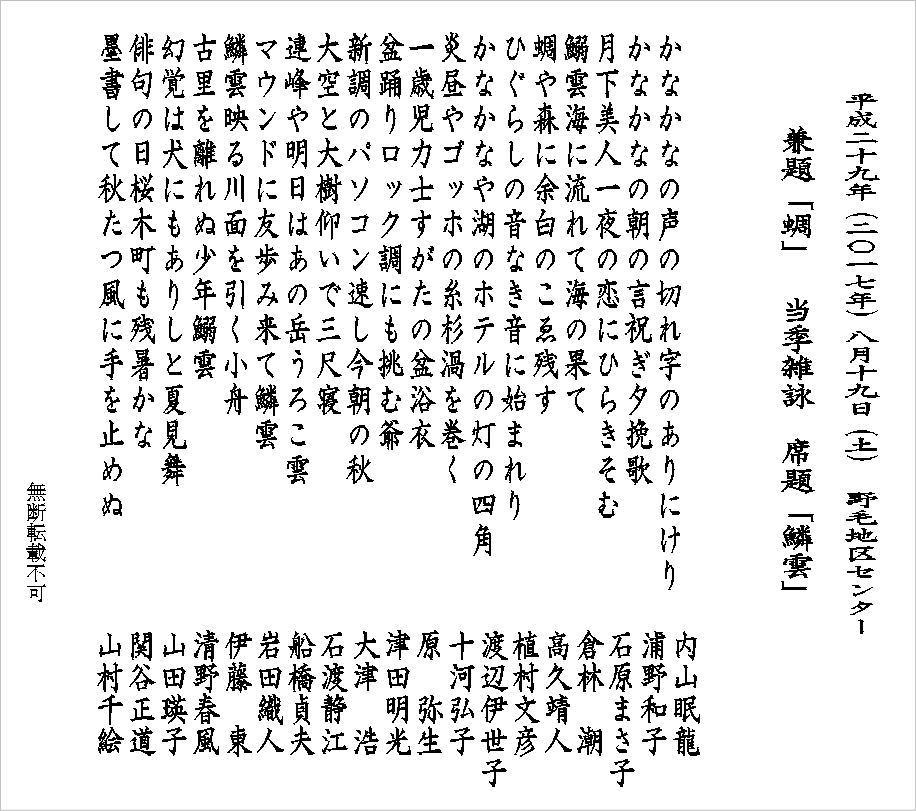 平成二十九年（二〇一七年）八月十九日（土）　野毛地区センター
兼題「蜩」　当季雑詠　席題「鱗雲」
かなかなの声の切れ字のありにけり　内山眠龍
かなかなの朝の言祝ぎ夕挽歌　浦野和子
月下美人一夜の恋にひらきそむ　石原まさ子
鰯雲海に流れて海の果て　倉林　潮
蜩や森に余白のこゑ残す　高久靖人
ひぐらしの音なき音に始まれり　植村文彦
かなかなや湖のホテルの灯の四角　渡辺伊世子
炎昼やゴッホの糸杉渦を巻く　十河弘子
一歳児力士すがたの盆浴衣　原　弥生
盆踊りロック調にも挑む爺　津田明光
新調のパソコン速し今朝の秋　大津　浩
大空と大樹仰いで三尺寝　石渡静江
連峰や明日はあの岳うろこ雲　船橋貞夫
マウンドに友歩み来て鱗雲　岩田織人
鱗雲映る川面を引く小舟　伊藤　東
古里を離れぬ少年鰯雲　清野春風
幻覚は犬にもありしと夏見舞　山田瑛子
俳句の日桜木町も残暑かな　関谷正道
墨書して秋たつ風に手を止めぬ　山村千絵
無断転載不可